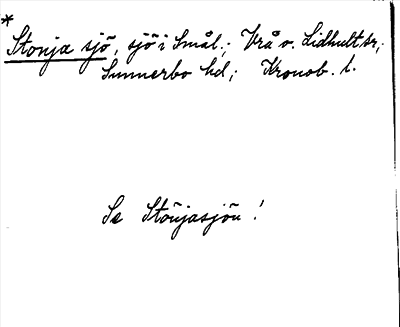 *
Stonja sjö, sjö i Smål.; Vrå o. Lidhult sr;
Sunnerbo hd; Kronob. l.
Se Stönjasjön!